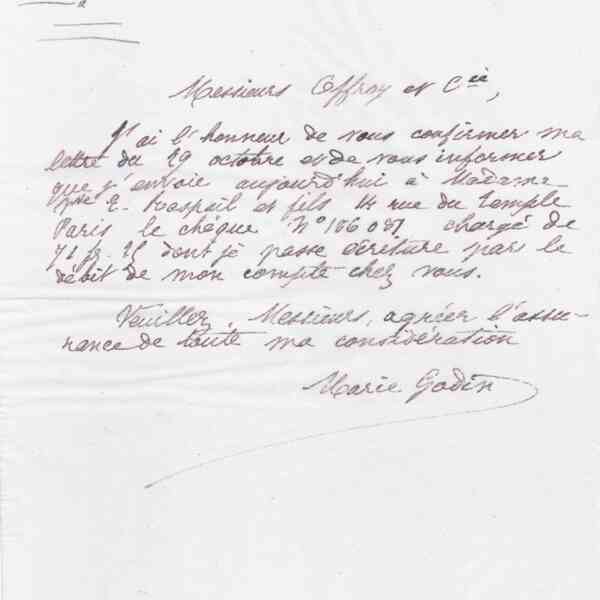 Messieurs Offroy et Cie,
J'ai l'honneur de vous confirmer ma
lettre du 29 octobre et de vous informer
que j'envoie aujourd'hui à Madame
Vve E. Raspail et fils 14 rue du Temple
Paris le chèque N° 106 081 chargé de
71 fr. 25 dont je passe écriture par le
débit de mon compte chez vous.
Veuillez, Messieurs, agréer l'assu-
rance de toute ma considération
Marie Godin